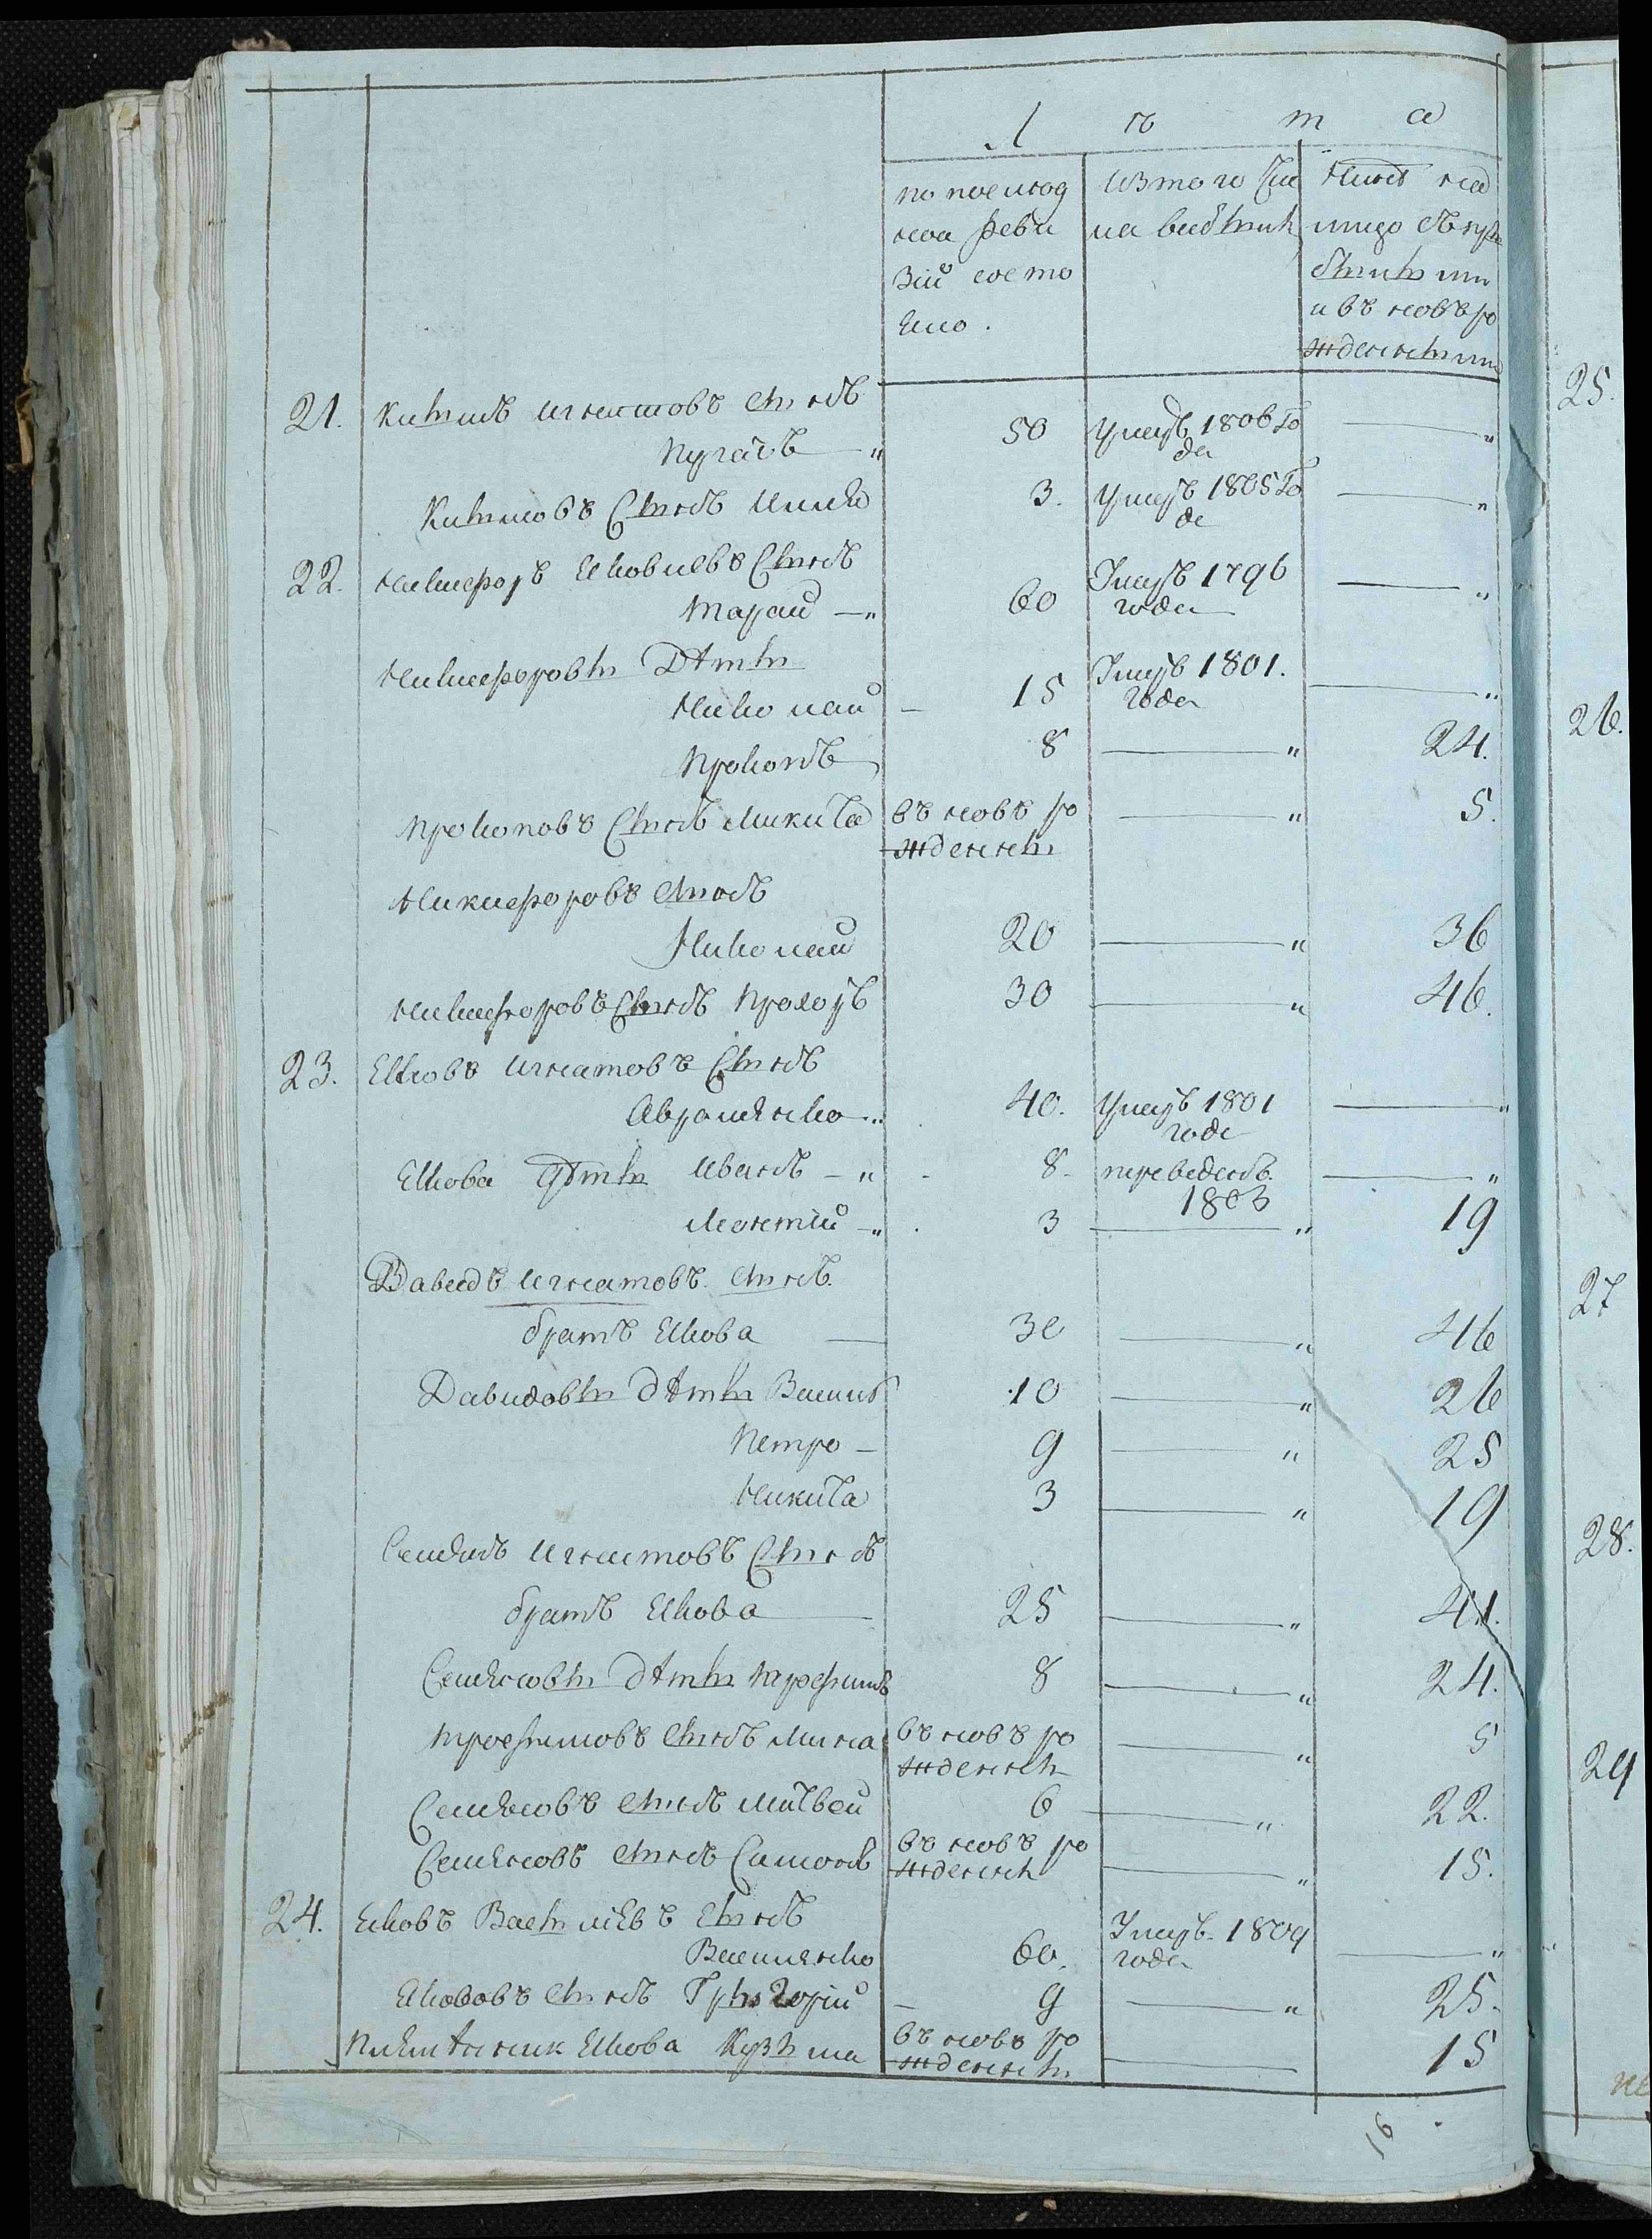 Л ѣ т а
по послѣд
ней реви
зіи состо
яло.
изтого чи
ла выбыли
ныне на
лицо съ при
былыми
и въ новѣ ро
жденными
21. Игнатовъ сынъ
50 умеръ 1806 го
да "
сынъ 3. умеръ 1805 го
да "
22. Никифоръ Яковлевъ сынъ
Таран " 60 Умеръ 1796
года "
Никифоровы Дѣти
Николай 15 Умеръ 1801.
года "
Прокопъ 8 " 24.
Прокоповъ сынъ Микита въ новѣ ро " 5.
жденный
Никифоровъ сынъ
Николай 20 " 36
Никифоровъ сынъ Прохоръ 30 " 46.
23. Яковъ Игнатовъ сынъ
Авраменко " 40. умеръ 1801
года "
Якова дѣти Иванъ " 8. переведенъ "
1803
Леонтій " 3 " 19
Давидъ Игнатовъ сынъ
братъ Якова 30 " 46
Давидовы дѣти Василь 10 " 26
Петро 9 " 25
Никита 3 " 19
Семенъ Игнатовъ сынъ
братъ Якова 25 " 41.
Семеновы дѣти Трофимъ 8 " 24.
Трофимовъ сынъ Мина въ новѣ ро " 5
жденный
Семеновъ сынъ Матвей 6 " 22.
Семеновъ сынъ Самойлъ въ новѣ ро
жденный " 15.
24. Яковъ Васильевъ сынъ
Василенко 60. Умеръ 1809
года "
Яковъ сынъ Григорій 9 " 25.
Племянник Якова Кузьма въ новѣ ро
жденный 15
16
25.
26.
27
28.
29